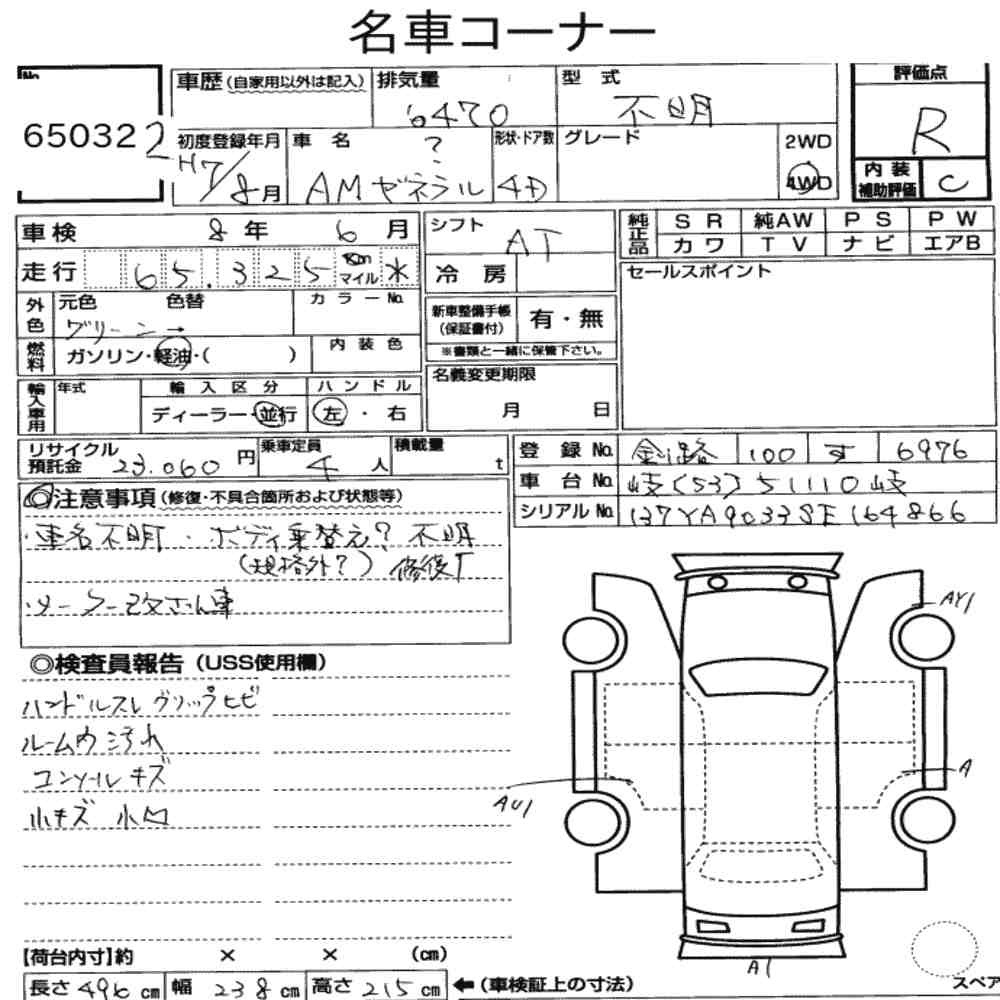 名車コーナー
No.
650322
車歴(自家用以外は記入)
排気量
6470
型式
不明
評価点
R
初度登録年月
H7/8月
車名
?
AM ゼネラル
形状・ドア数
4D
グレード
2WD
4WD
内装補助評価
C
車検 8年 6月
シフト
AT
純正品
SR 純AW PS PW
カワ TV ナビ エアB
走行 65.325 Km マイル 水
冷房
セールスポイント
外色
元色 色替
グリーン→
カラーNo.
新車整備手帳(保証書付)
有・無
※書類と一緒に保管下さい。
燃料
ガソリン・軽油・( )
内装色
名義変更期限
月 日
輸入車用
年式
輸入区分
ハンドル
ディーラー・並行
左・右
リサイクル預託金 23.060円
乗車定員 4人
積載量 t
登録No. 100 す 6976
車台No. 岐(53)51110岐
シリアルNo. 137YA9033SE164866
◎注意事項(修復・不具合箇所および状態等)
・車名不明・ボディ乗替え? 不明
(規格外?) 修復
・メーター改ざん車
◎検査員報告(USS使用欄)
ハンドルスレ グリップヒビ
ルーム内汚れ
コンソールキズ
小キズ 小凹
AY1
A
AU1
A1
【荷台内寸】約 × × (cm)
スペア
長さ 496 cm 幅 238 cm 高さ 215 cm ←(車検証上の寸法)